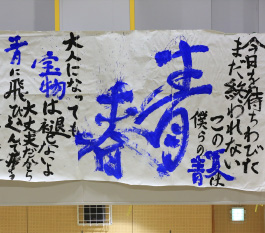 今日も待ちわびた
まだ終われない
この夏は
僕らの青
青春
大人になっても
宝物は退色しないよ
大丈夫だから
青に飛び込んで